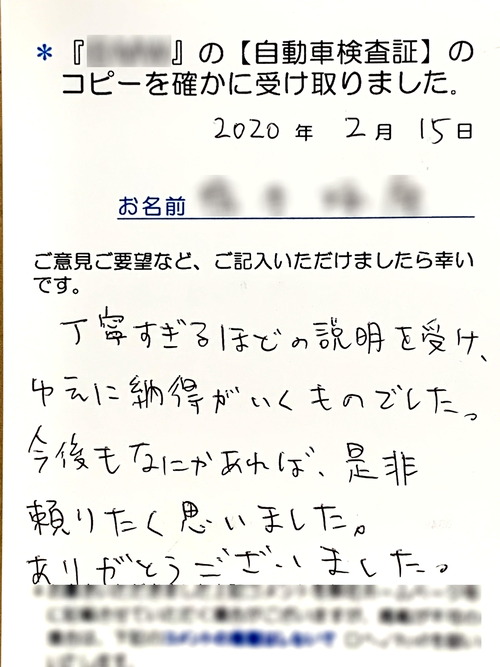 ＊『』の【自動車検査証】の
コピーを確かに受け取りました。
2020年 2月 15日
お名前
ご意見ご要望など、ご記入いただけましたら幸い
です。
丁寧すぎるほどの説明を受け、
ゆえに納得がいくものでした。
今後もなにかあれば、是非
頼りたく思いました。
ありがとうございました。